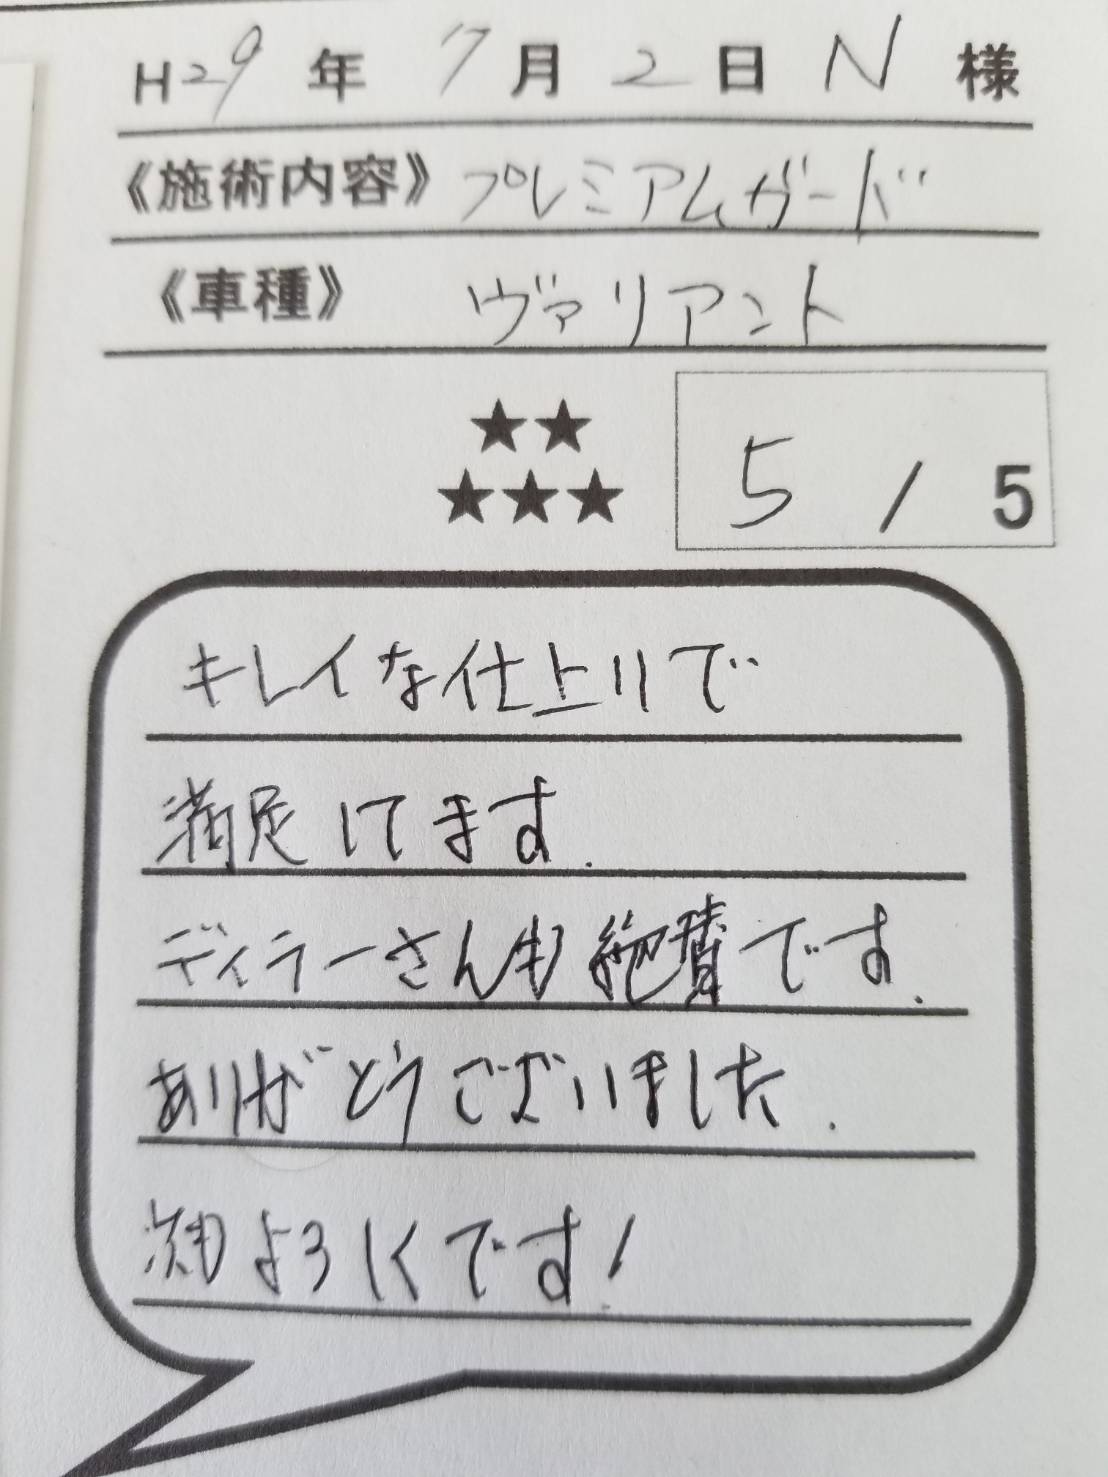 H29年 7月2日 N 様
《施術内容》プレミアムガード
《車種》ヴァリアント
★★
★★★ 5 / 5
キレイな仕上りで
満足してます.
ディラーさんも絶賛です.
ありがとうございました.
次もよろしくです!